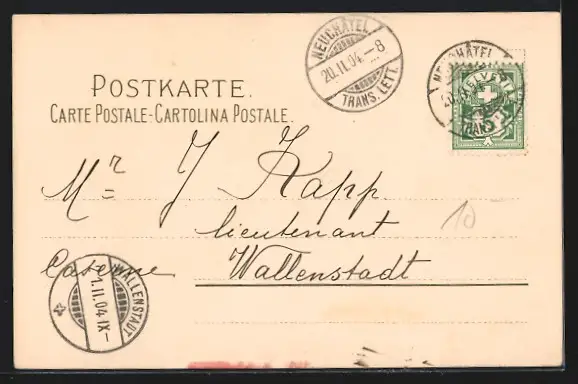 NEUCHÂTEL
20.II.04.-8
TRANS. LETT.
NEUCHÂTEL
HELVETIA
TRANS.
POSTKARTE.
CARTE POSTALE-CARTOLINA POSTALE.
Mr J Kapp
10
lieutenant
Caserne Wallenstadt
WALLENSTADT
1.II.04.IX-